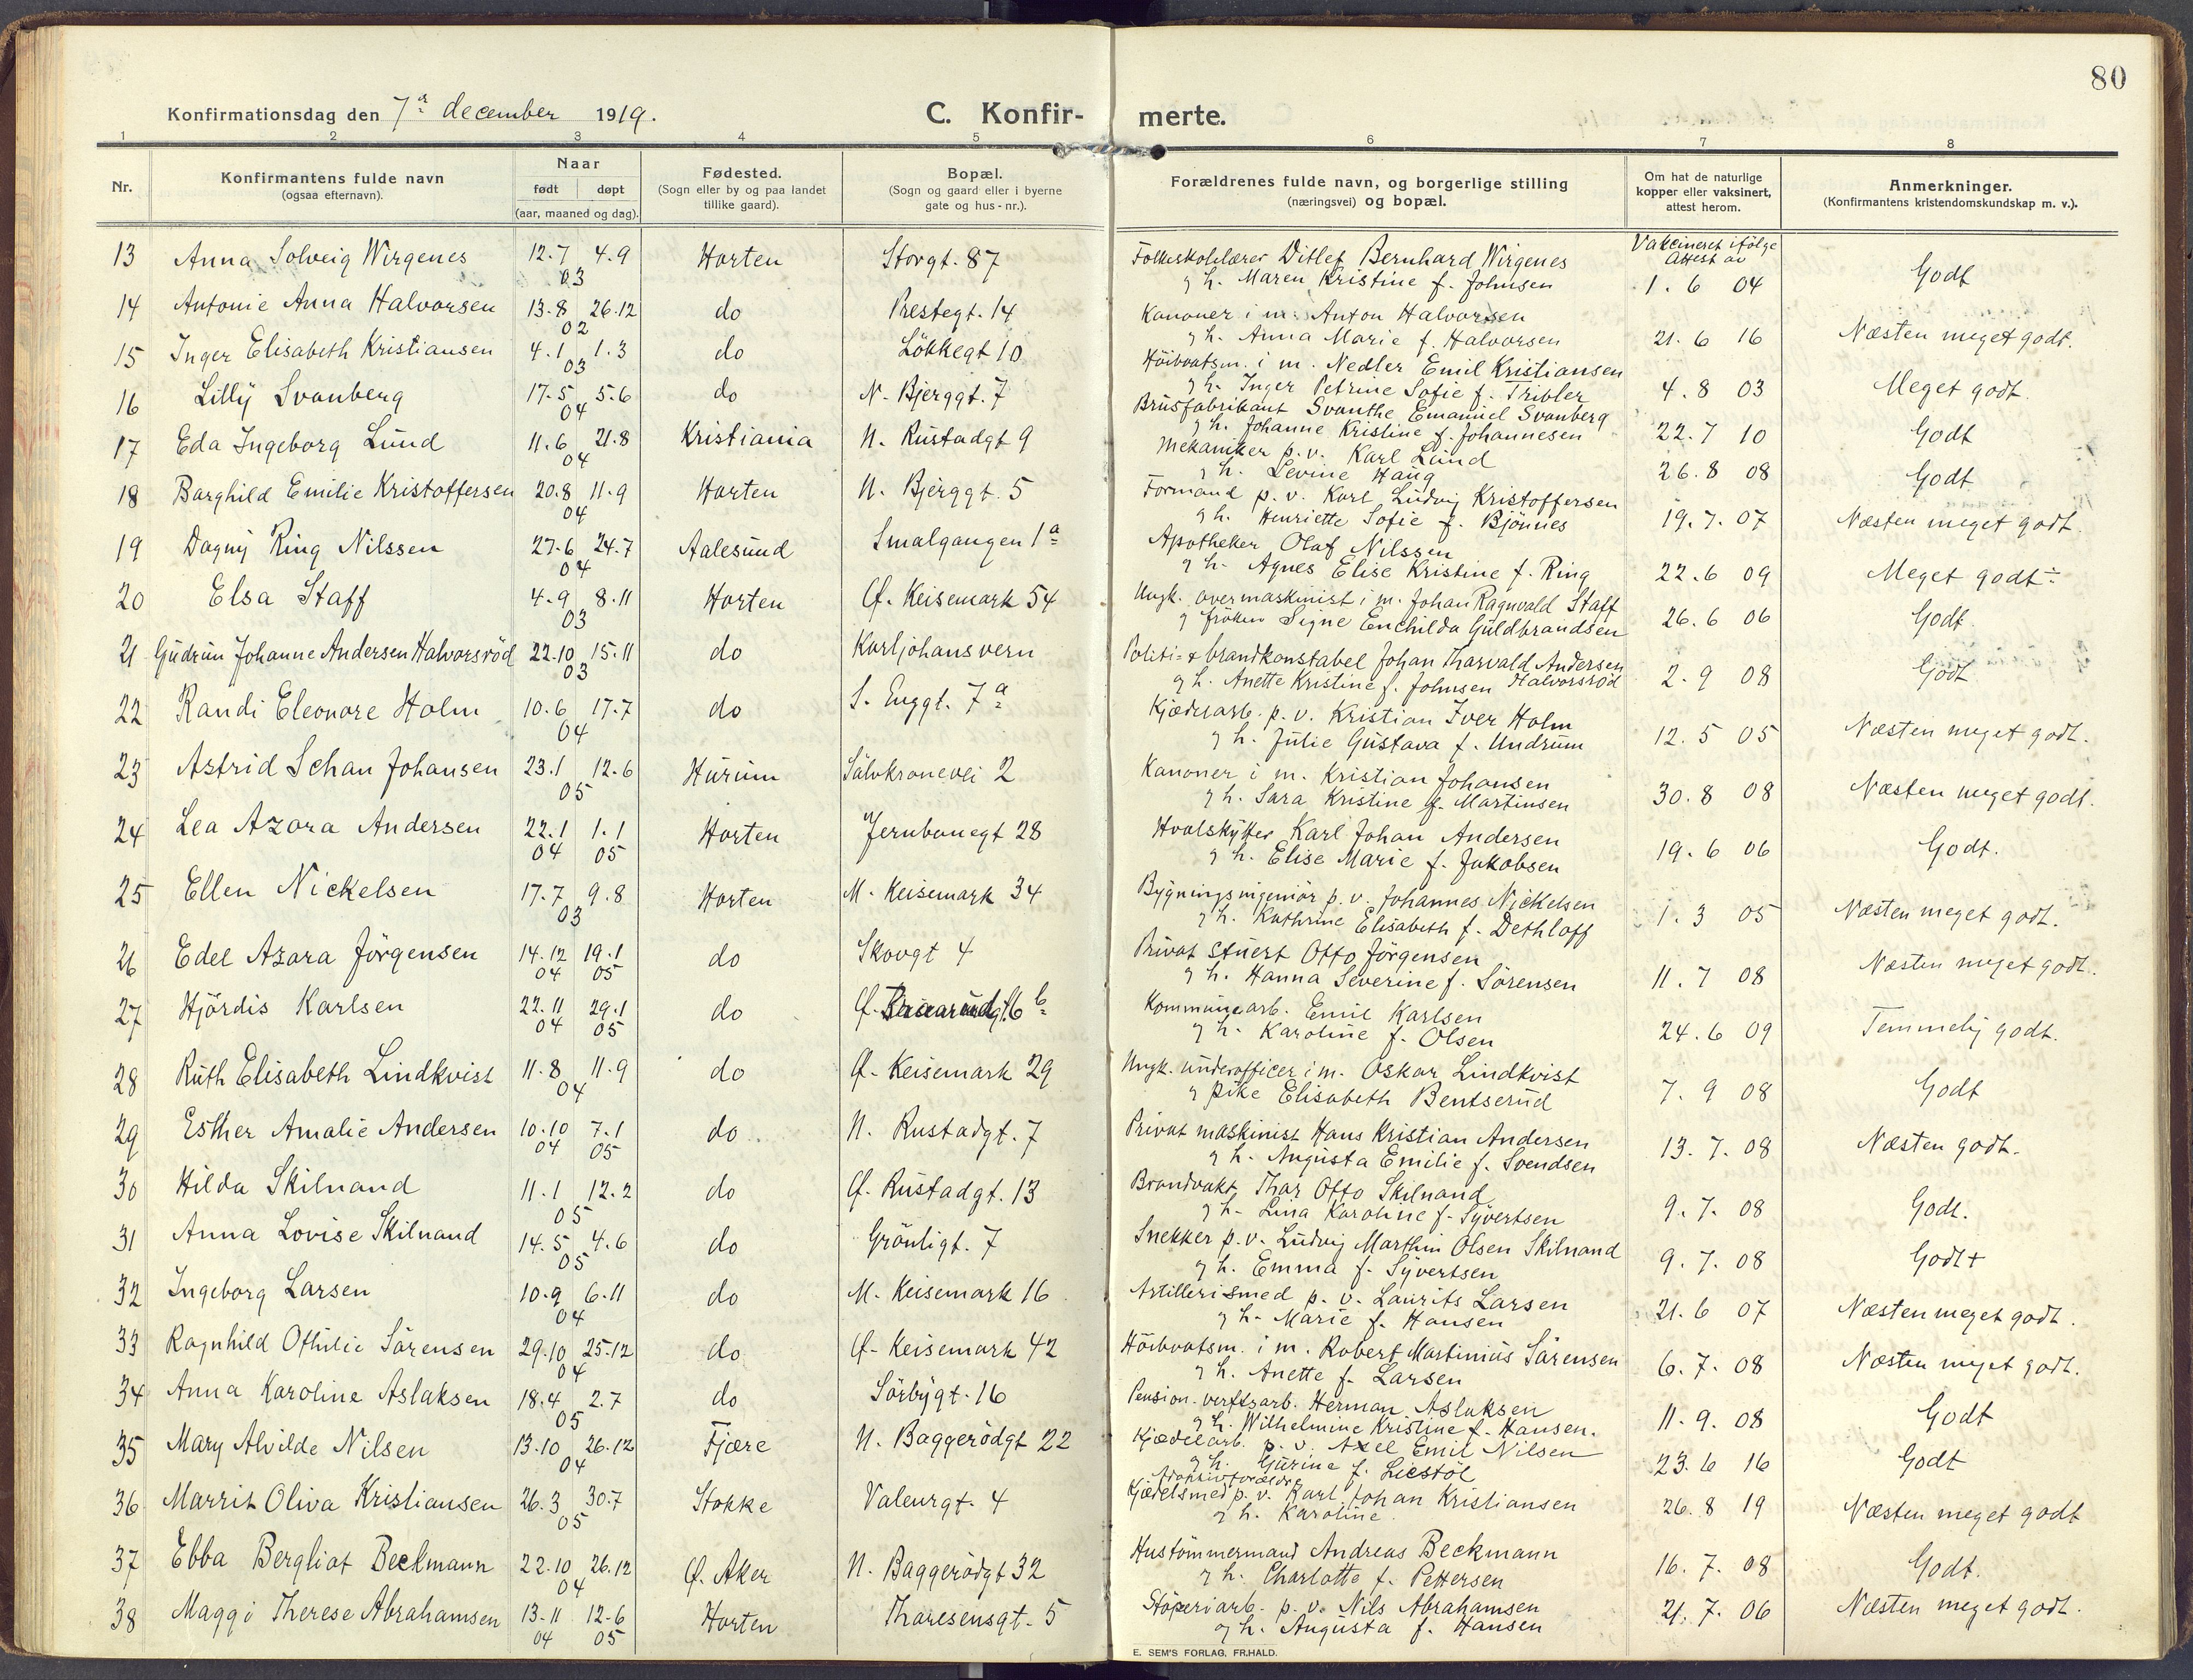 80
Konfirmationsdag den 7de december 1919. C. Konfir- merte.
1 2 3 4 5 6 7 8
Nr.
Konfirmantens fulde navn
(ogsaa efternavn).
Naar
født døpt
(aar, maaned og dag).
Fødested.
(Sogn eller by og paa landet
tillike gaard).
Bopæl.
(Sogn og gaard eller i byerne
gate og hus-nr.).
Forældrenes fulde navn, og borgerlige stilling
(næringsvei) og bopæl.
Om hat de naturlige
kopper eller vaksinert,
attest herom.
Anmerkninger.
(Konfirmantens kristendomskundskap m. v.).
Vakcineret ifölge
attest av
13 Anna Solveig Wirgenes 12.7 4.9 03 Horten Storgt. 87 Folkeskolelærer Ditlef Bernhard Wirgenes
g h. Maren Kristine f. Johnsen 1. 6 04 Godt
14 Antonie Anna Halvorsen 13.8 26.12 02 do Prestegt. 14 Kanoner i m. Anton Halvorsen
g h. Anna Marie f. Halvorsen 21. 6 16 Næsten meget godt.
15 Inger Elisabeth Kristiansen 4.1 1.3 03 do Løkkegt 10 Höibaatsm. i m. Nedler Emil Kristiansen
g h. Inger Petrine Sofie f. Tribler 4. 8 03 Meget godt.
16 Lilly Svanberg 17.5 5.6 04 do N. Bjerggt. 7 Brusfabrikant Svanthe Emanuel Svanberg
g h. Johanne Kristine f. Johannesen 22. 7 10 Godt
17 Eda Ingeborg Lund 11.6 21.8 04 Kristiania N. Rustadgt 9 Mekaniker p. v. Karl Lund
g h. Levine Haug 26. 8 08 Godt
18 Borghild Emilie Kristoffersen 20.8 11.9 04 Horten N. Bjerggt. 5 Formand p. v. Karl Ludvig Kristoffersen
g h. Henriette Sofie f. Bjönnes 19. 7. 07 Næsten meget godt.
19 Dagny Ring Nilssen 27.6 24.7 04 Aalesund Smalgangen 1a Apotheker Olaf Nilssen
g h. Agnes Elise Kristine f. Ring 22. 6 09 Meget godt ÷
20 Elsa Staff 4.9 8.11 03 Horten Ø. Keisemark 54 Ungk. overmaskinist i m. Johan Ragnvald Staff
g fröken Signe Enchilda Guldbrandsen 26. 6 06 Godt
21 Gudrun Johanne Andersen Halvorsröd 22.10 15.11 03 do Karljohansvern Politi- & brandkonstabel Johan Tharvald Andersen
g h. Anette Kristine f. Johnsen Halvorsröd 2. 9 08 Godt
22 Randi Eleonore Holm 10.6 17.7 04 do S. Enggt. 7a Kjædearb. p. v. Kristian Iver Holm
g h. Julie Gustava f. Undrum 12. 5 05 Næsten meget godt.
23 Astrid Schau Johansen 23.1 12.6 05 Hurum Sölvkronevei 2 Kanoner i m. Kristian Johansen
g h. Sara Kristine f. Martinsen 30. 8 08 Næsten meget godt.
24 Lea Azora Andersen 22.1 1.1 04 05 Horten Jernbanegt 28 Hvalskytter Karl Johan Andersen
g h. Elise Marie f. Jakobsen 19. 6 06 Godt.
25 Ellen Nickelsen 17.7 9.8 03 Horten M. Keisemark 34 Bygningsingeniör p. v. Johannes Nickelsen
g h. Kathrine Elisabeth f. Dethloff 1. 3 05 Næsten meget godt.
26 Edel Azora Jörgensen 14.12 19.1 04 05 do Skovgt 4 Privat stuert Otto Jörgensen
g h. Hanna Severine f. Sörensen 11. 7 08 Næsten meget godt.
27 Hjördis Karlsen 22.11 29.1 04 05 do Ø. 16 b Kommunearb. Emil Karlsen
g h. Karoline f. Olsen 24. 6 09 Temmelig godt.
28 Ruth Elisabeth Lindkvist 11.8 11.9 04 do Ø. Keisemark 29 Ungk. underofficer i m. Oskar Lindkvist
g pike Elisabeth Bentserud 7. 9 08 Godt
29 Esther Amalie Andersen 10.10 7.1 04 05 do N. Rustadgt. 7 Privat maskinist Hans Kristian Andersen
g h. Augusta Emilie f. Svendsen 13. 7. 08 Næsten godt.
30 Hilda Skilnand 11.1 12.2 05 do Ø. Rustadgt. 13 Brandvakt Thor Otto Skilnand
g h. Lina Karoline f. Syvertsen 9. 7. 08 Godt.
31 Anna Lovise Skilnand 14.5 4.6 05 do Grönligt. 7 Snekker p. v. Ludvig Marthin Olsen Skilnand
g h. Emma f. Syvertsen 9. 7. 08 Godt +
32 Ingeborg Larsen 10.9 6.11 04 do M. Keisemark 16 Artillerismed p. v. Laurits Larsen
g h. Marie f. Hansen 21. 6 07 Næsten meget godt.
33 Ragnhild Othilie Sörensen 29.10 25.12 04 do Ø. Keisemark 42 Höibaatsm. i m. Robert Martinius Sörensen
g h. Anette f. Larsen 6. 7. 08 Næsten meget godt.
34 Anna Karoline Aslaksen 18.4 2.7 05 do Sörbygt. 16 Pension. verftsarb. Herman Aslaksen
g h. Wilhelmine Kristine f. Hansen. 11. 9. 08 Godt
35 Mary Alvilde Nilsen 13.10 26.12 04 Fjære N. Baggerödgt 22 Kjædearb. p. v. Axel Emil Nilsen
g h. Gurine f. Liestöl 23. 6 16 Godt
36 Marrit Oliva Kristiansen 26.3 30.7 05 Stokke Valeurgt. 4 Adoptivforældre
Kjædesmed p. v. Karl Johan Kristiansen
g h. Karoline 26. 8 19 Næsten meget godt
37 Ebba Bergliot Beckmann 22.10 26.12 04 Ø. Aker N. Baggerödgt 32 Hustömmermand Andreas Beckmann
g h. Charlotte f. Pettersen 16. 7. 08 Godt.
38 Maggi Therese Abrahamsen 13.11 12.6 04 05 Horten Tharesensgt. 5 Stöperiarb. p. v. Nils Abrahamsen
g h. Augusta f. Hansen 21. 7. 06 Næsten meget godt.
E. SEM'S FORLAG, FR.HALD.